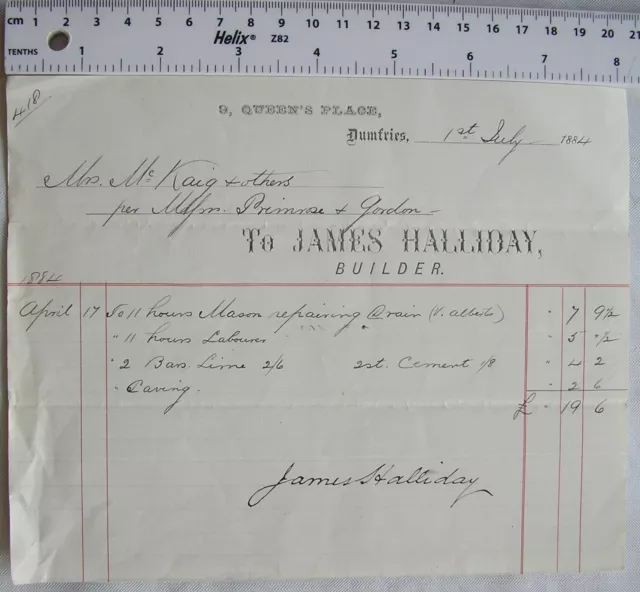 cm 0 1 2 3 4 5 6 7 8 9 10 11 12 13 14 15 16 17 18 19 20 21
Helix® Z82
TENTHS 1 2 3 4 5 6 7 8
418
9, QUEEN'S PLACE,
Dumfries, 1st July 1884
Mrs. Mc Kaig & others
per Messrs. Primrose & Gordon
To JAMES HALLIDAY,
BUILDER.
1884
April 17 To 11 hours Mason repairing Drain (V. alberts) " 7 9 1/2
" 11 hours Labourer " 5 " 1/2
" 2 Bars. Lime 2/6 2st. Cement 1/8 " 4 2
" Caving. " 2 6
£ " 19 6
James Halliday